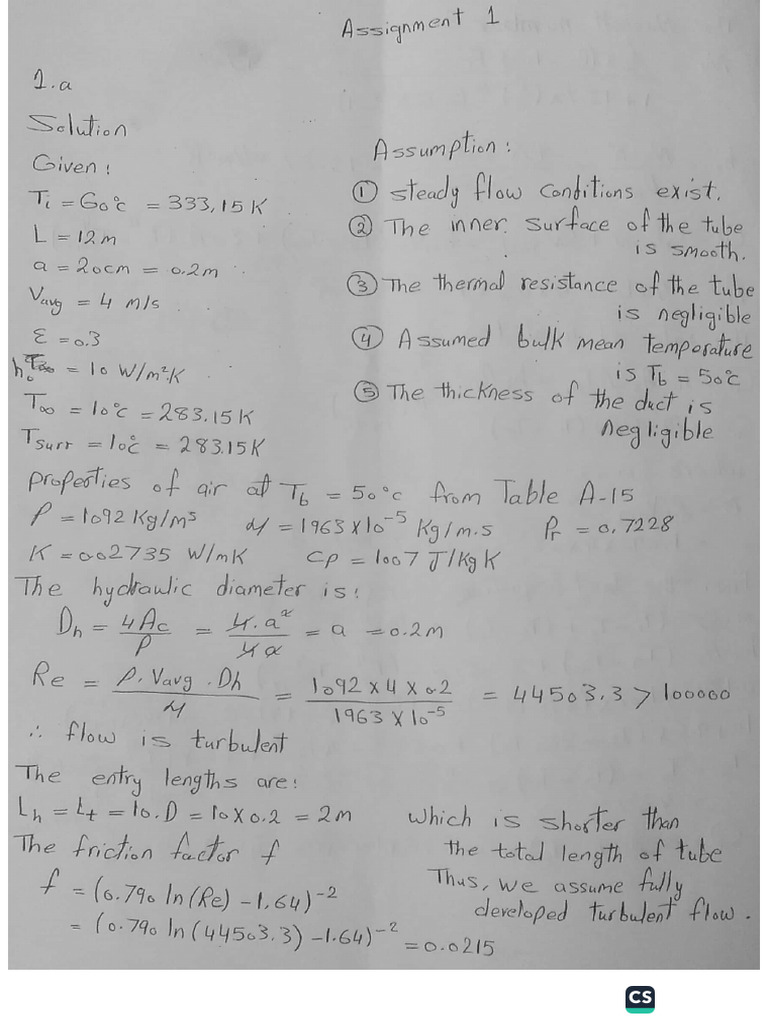 Assignment 1
1.a
Solution
Given:
Ti = 60°c = 333,15 K
L = 12m
a = 20cm = 0.2m
Vavg = 4 m/s
ε = 0.3
ho = 10 W/m².K
T∞ = 10°c = 283.15K
Tsurr = 10°c = 283.15K
Assumption:
① steady flow conditions exist.
② The inner surface of the tube
is smooth.
③ The thermal resistance of the tube
is negligible
④ Assumed bulk mean temperature
is Tb = 50°c
⑤ The thickness of the duct is
negligible
properties of air at Tb = 50°c from Table A-15
ρ = 1092 Kg/m³ μ = 1963 x 10⁻⁵ Kg/m.s Pr = 0,7228
K = 0.02735 W/mK CP = 1007 J/Kg K
The hydraulic diameter is:
Dh = 4Ac/P = 4.a²/4a = a = 0.2m
Re = ρ.Vavg.Dh/μ = 1092 x 4 x 0.2/1963 x 10⁻⁵ = 44503.3 > 100000
∴ flow is turbulent
The entry lengths are:
Lh = Lt = 10.D = 10 x 0.2 = 2m
which is shorter than
the total length of tube
Thus, we assume fully
developed turbulent flow.
The friction factor f
f = (0.790 ln(Re) - 1.64)⁻²
= (0.790 ln(44503.3) - 1.64)⁻² = 0.0215
CS